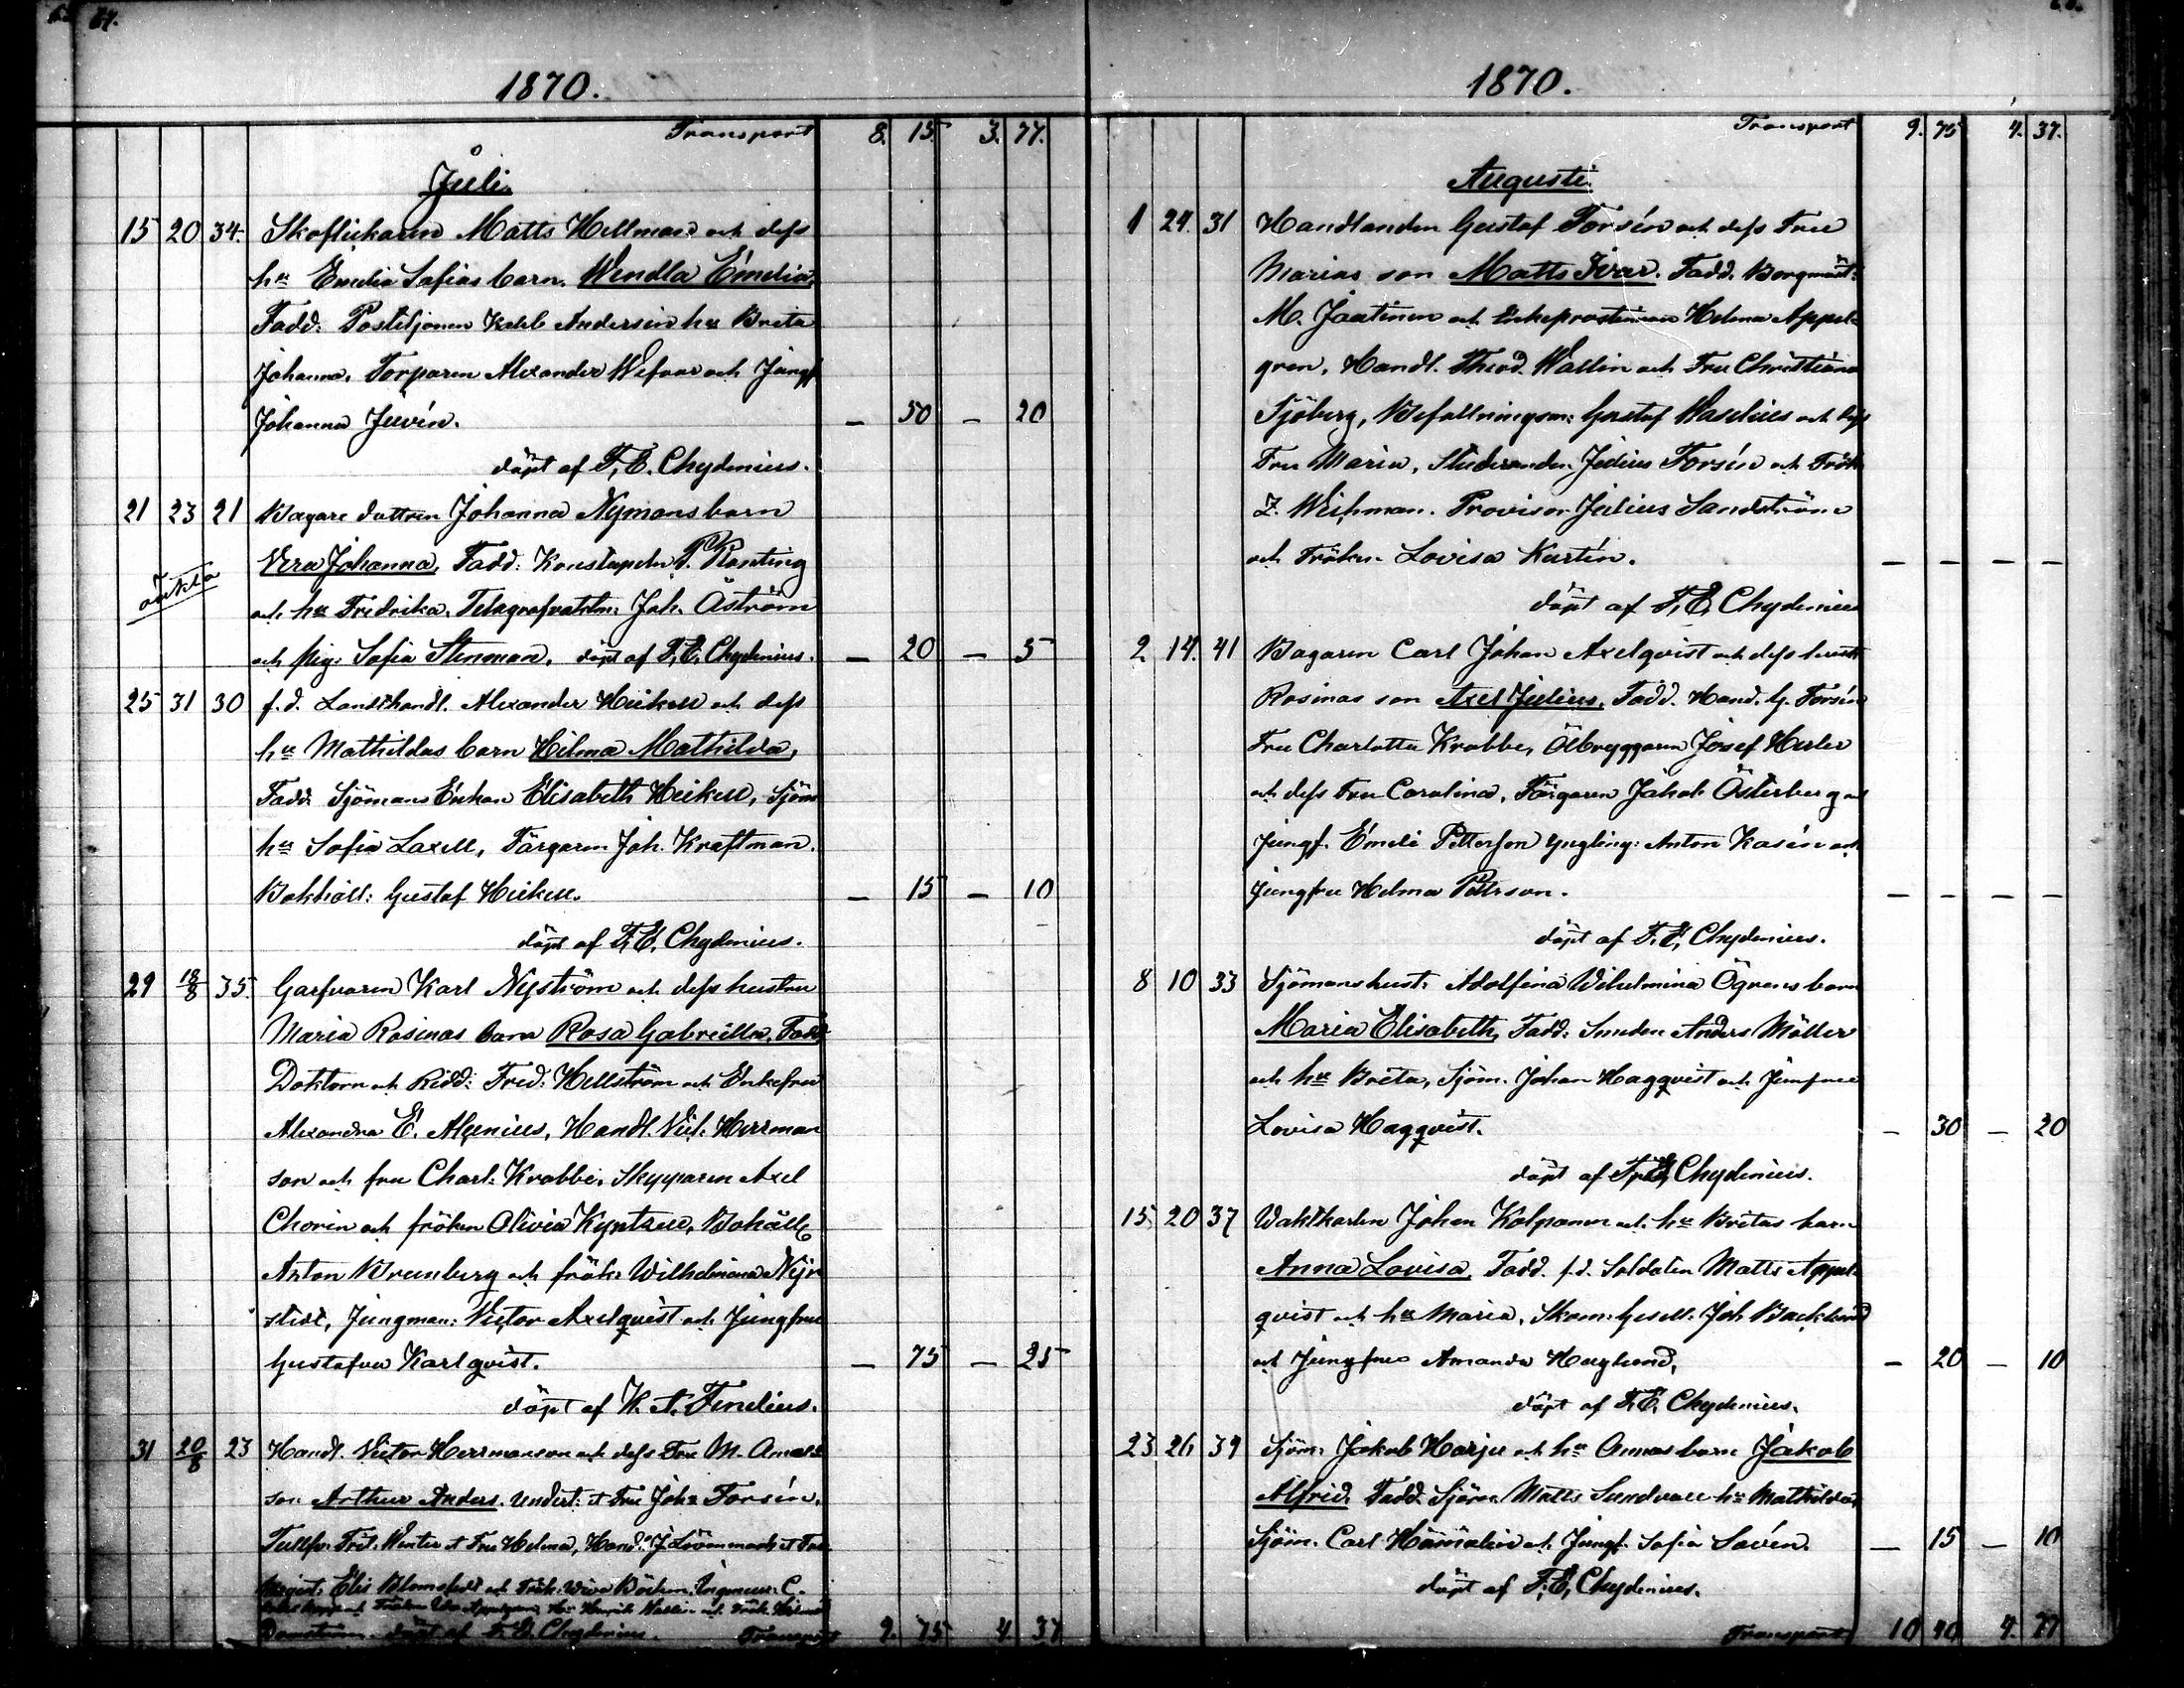 67.
1870.
Transport 8. 15. 3. 77.
Juli.
15 20 34. Skoflickaren Matts Hellman och dess
hu Emelia Sofias barn. Wendla Emelia,
Fadd: Postiljonen Kaleb Andersin hu Brita
Johanna, Torparen Alexander Wefvar och Jungf
Johanna Juvén. — 50 — 20
döpt af F. E. Chydenius.
21 23 21 Bagare dottren Johanna Nymans barn
oäkta
Vera Johanna, Fadd: Konstapeln P. Ranting
och hu Fredrika, Telegrafvaktm: Joh. Åström
och pig: Sofia Stenman, döpt af F. E. Chydenius. — 20 — 5
25 31 30 f.d. Landthandl. Alexander Heikell och dess
hu Mathildas barn Hilma Mathilda,
Fadd: Sjömans Enkan Elisabeth Heikell, Sjöm
hu Sofia Laxell, Färgaren Joh. Kraftman.
Bokhåll: Gustaf Heikell. — 15 — 10
döpt af F. E. Chydenius.
29 18/8 35. Garfvaren Karl Nyström och dess hustru
Maria Rosinas barn Rosa Gabriella, Fadd:
Doktorn och Ridd: Fred: Hellström och Enkefru
Alexandra E. Alcenius, Handl. Vict. Herrman
son och fru Charl: Krabbe, Skepparen Axel
Chorin och fröken Olivia Kyntzell, Bokhåll
Anton Brunberg och frök: Wilhelmina Nyr
stedt, Jungman: Victor Axelqvist och Jungfru
Gustafva Karlqvist. — 75 — 25
döpt af K. A. Fenelius.
31 20/8 23 Handl. Victor Herrmanson och dess Fru M. Amal
son Arthur Anders. Undert: et Fru Joh: Forsén,
Tullfv. Frit. Winter et Fru Helma, Handl J. Lövenmark et Fru
Magist: Elis Blomqvist och Frök. Böckm. Ingenieur. C.
Henrik Wallin och Frök.
döpt af F. E. Chydenius. Transport 9. 75 4. 37
1870.
Transport 9. 75 4. 37.
Augusti.
1 24. 31 Handlanden Gustaf Forsén och dess Fru
Marias son Matts Ivar. Fadd. Borgmäst:
M. Jaatinen och Enkeprostinnan Helma Appel-
gren, Handl. Theod. Wallin och Fru Christiana
Sjöberg, Befallningsm: Gustaf Waselius och dess
Fru Maria, Studeranden Julius Forsén och Frök
Z. Weikman. Provisor Julius Sandström
och Fröken Lovisa Kurtén. — — — —
döpt af F. E. Chydenius
2 14. 41 Bagaren Carl Johan Axelqvist och dess hustr
Rosinas son Axel Julius, Fadd. Hand. G. Forsén
Fru Charlotta Krabbe, Ölbryggaren Josef Hesler
och dess Fru Carolina, Färgaren Jakob Österberg och
Jungf. Emeli Petterson Yngling: Anton Kasén och
Jungfru Helma Petterson. — — — —
döpt af F. E. Chydenius.
8 10 33 Sjömanshust: Adolfina Wilhelmina Ögrens barn
Maria Elisabeth, Fadd: Smeden Anders Möller
och hu Brita, Sjöm. Johan Hagqvist och Jungfru
Lovisa Hagqvist. — 30 — 20
döpt af F. E. Chydenius.
15 20 37 Waktkarlen Johan Kolpanen och hu Britas barn
Anna Lovisa, Fadd. f.d. Soldaten Matts Appel-
qvist och hu Maria, Skom: Gesell: Joh Backlund
och Jungfru Amanda Haglund, — 20 — 10
döpt af F. E. Chydenius.
23 26 39 Sjöm: Jakob Harju och hu Annas barn Jakob
Alfrid, Fadd. Sjöm: Matts Sundvall hu Mathilda
Sjöm. Carl Hämälin och Jungf. Sofia Lovén. — 15 — 10
döpt af F. E. Chydenius.
Transport 10 40 4. 77